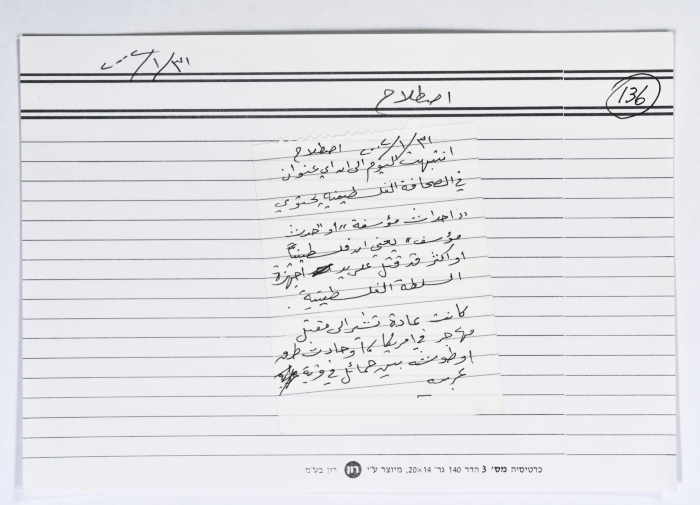 ٣١/١/٢٠٠٢
اصطلاح
136
٣١/١/٢٠٠٢ اصطلاح
انتبهت اليوم الى ان اي عنوان
في الصحافة الفلسطينية يحتوي
"احداث مؤسفة" او "حدث
مؤسف" يعني ان فلسطينياً
او اكثر قد قتل على يد اجهزة
السلطة الفلسطينية.
كانت عادة تشير الى مقتل
مهاجر في امريكا، او حادث طرق
او طوشة بين حمائل في قرية
عربية
כרטיסיה מס' 3 הדר 140 גר' 14×20, מיוצר ע"י רון רון בע"מ